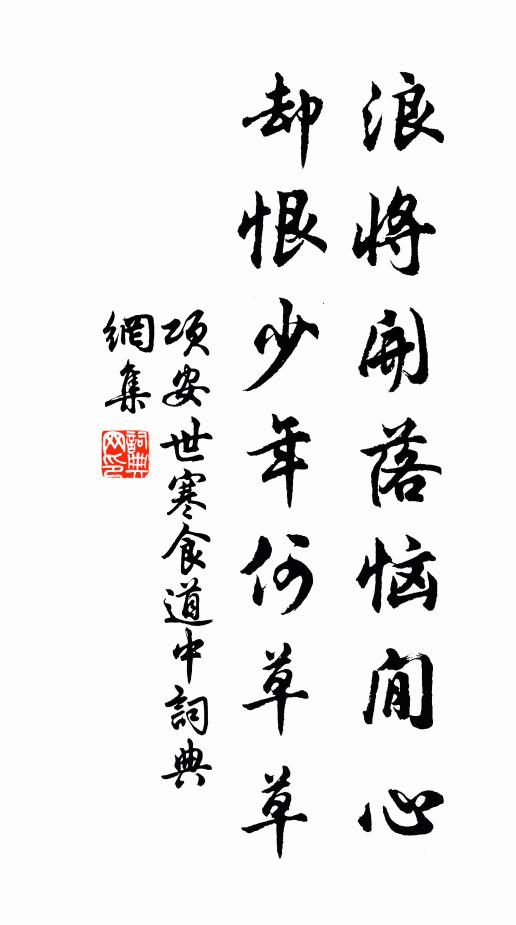 浪將開落惱閒心
却恨少年何草草
項安世寒食道中詞典
網集
詞典網印